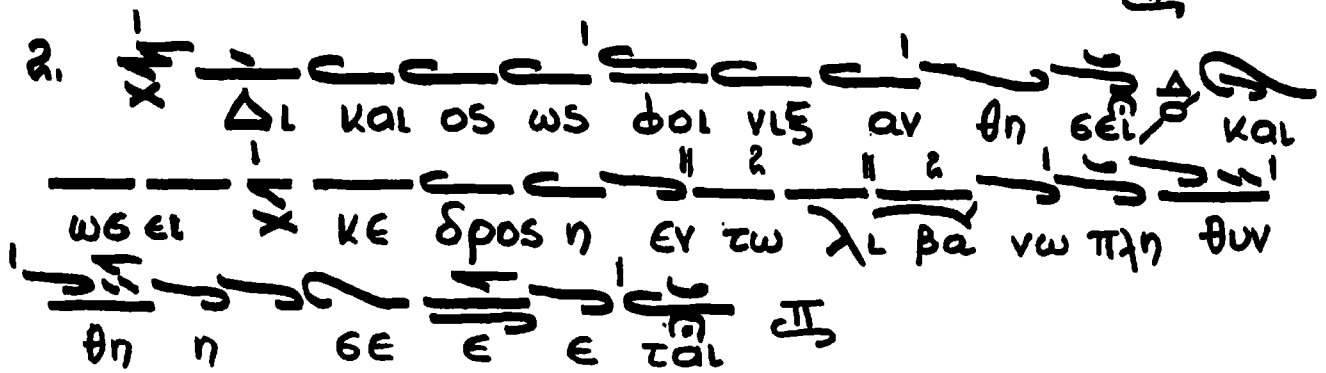 2. Δι και ος ως φοι νιξ αν θη σει Δ και
ως ει κε δρος η εν τω λι βα νω πλη θυν
θη η σε ε ε ται Π